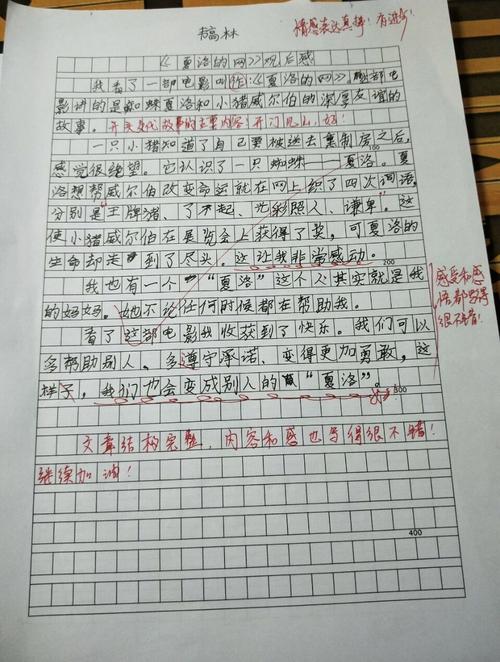 稿林
情感表达真挚！有进步！
《夏洛的网》观后感
我看了一部电影叫作：《夏洛的网》，这部电
影讲的是蜘蛛夏洛和小猪威尔伯的深厚友谊的
故事。开头交代故事的主要内容，开门见山，好！
一只小猪知道了自己要被送去熏制房之后，
感觉很绝望。它认识了一只蜘蛛——夏洛。夏
洛想帮威尔伯改变命运就在网上织了四次词语，
分别是王牌猪、了不起、光彩照人、谦单。这
使小猪威尔伯在展览会上获得了奖，可夏洛的
生命却走到了尽头。这让我非常感动。
我也有一个“夏洛”这个人其实就是我
的妈妈。她不论任何时候都在帮助我。
感受和感
悟都写得
很不错！
看了这部电影我收获到了快乐。我们可以
多帮助别人、多遵守承诺、变得更加勇敢，这
样子，我们也会变成别人的“夏洛”。
文章结构完整，内容和感也写得很不错！
继续加油！
100
200
300
400